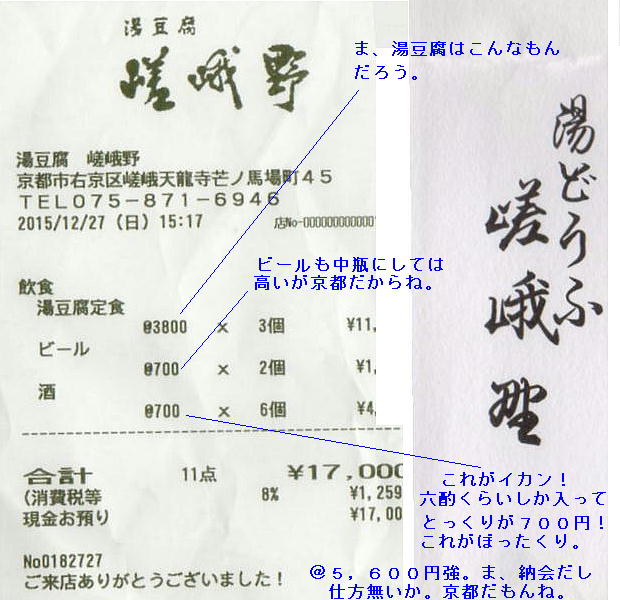 湯豆腐
嵯峨野
湯豆腐 嵯峨野
京都市右京区嵯峨天龍寺芒ノ馬場町45
TEL075-871-6946
2015/12/27(日)15:17 店No-000000000000
飲食
湯豆腐定食
@3800 x 3個 ¥11,
ビール
@700 x 2個 ¥1,
酒
@700 x 6個 ¥4,
合計 11点 ¥17,000
(消費税等 8% ¥1,259
現金お預り ¥17,00
No0182727
ご来店ありがとうございました!
ま、湯豆腐はこんなもん
だろう。
ビールも中瓶にしては
高いが京都だからね。
これがイカン!
六酌くらいしか入って
とっくりが700円!
これがぼったくり。
@5,600円強。ま、納会だし
仕方無いか。京都だもんね。
湯どうふ
嵯峨野